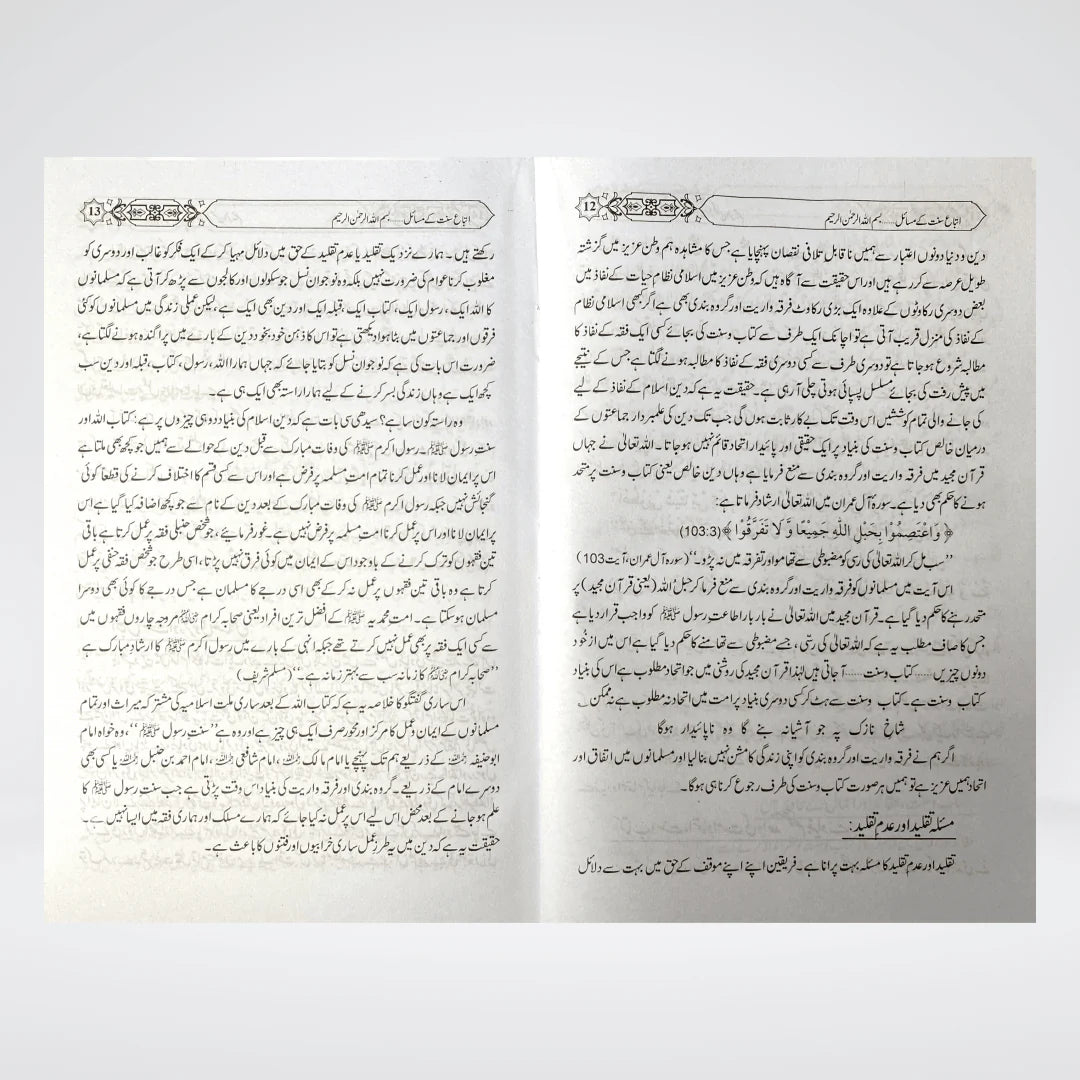 اتباع سنت کے مسائل.....بسم اللہ الرحمٰن الرحیم
12
دین و دنیا دونوں اعتبار سے ہمیں ناقابل تلافی نقصان پہنچایا ہے جس کا مشاہدہ ہم وطن عزیز میں گزشتہ
طویل عرصہ سے کر رہے ہیں اور اس حقیقت سے آگاہ ہیں کہ وطن عزیز میں اسلامی نظام حیات کے نفاذ میں
بعض دوسری رکاوٹوں کے علاوہ ایک بڑی رکاوٹ فرقہ واریت اور گروہ بندی بھی ہے اگر کبھی اسلامی نظام
کے نفاذ کی منزل قریب آتی ہے تو اچانک ایک طرف سے کتاب وسنت کی بجائے کسی ایک فقہ کے نفاذ کا
مطالبہ شروع ہو جاتا ہے تو دوسری طرف سے کسی دوسری فقہ کے نفاذ کا مطالبہ ہونے لگتا ہے جس کے نتیجے
میں پیش رفت کی بجائے مسلسل پسپائی ہوتی چلی آرہی ہے۔ حقیقت یہ ہے کہ دین اسلام کے نفاذ کے لیے
کی جانے والی تمام کوششیں اس وقت تک بے کار ثابت ہوں گی جب تک دین کی علمبردار جماعتوں کے
درمیان خالص کتاب وسنت کی بنیاد پر ایک حقیقی اور پائیدار اتحاد قائم نہیں ہو جاتا۔ اللہ تعالیٰ نے جہاں
قرآن مجید میں فرقہ واریت اور گروہ بندی سے منع فرمایا ہے وہاں دین خالص یعنی کتاب وسنت پر متحد
ہونے کا حکم بھی دیا ہے۔ سورۂ آل عمران میں اللہ تعالیٰ ارشاد فرماتا ہے:
﴿ وَاعْتَصِمُوْا بِحَبْلِ اللّٰهِ جَمِيْعًا وَّ لَا تَفَرَّقُوْا ﴾(103:3)
’’سب مل کر اللہ تعالیٰ کی رسی کو مضبوطی سے تھامو اور تفرقہ میں نہ پڑو۔‘‘(سورہ آل عمران، آیت 103)
اس آیت میں مسلمانوں کو فرقہ واریت اور گروہ بندی سے منع فرما کر حبل اللہ (یعنی قرآن مجید) پر
متحد رہنے کا حکم دیا گیا ہے۔ قرآن مجید میں اللہ تعالیٰ نے بار بار اطاعت رسول ﷺ کو واجب قرار دیا ہے
جس کا صاف مطلب یہ ہے کہ اللہ تعالیٰ کی رسی، جسے مضبوطی سے تھامنے کا حکم دیا گیا ہے اس میں از خود
دونوں چیزیں.....کتاب وسنت.....آجاتی ہیں لہٰذا قرآن مجید کی روشنی میں جو اتحاد مطلوب ہے اس کی بنیاد
کتاب وسنت ہے۔ کتاب وسنت سے ہٹ کر کسی دوسری بنیاد پر امت میں اتحاد نہ مطلوب ہے نہ ممکن۔
شاخ نازک پہ جو آشیانہ بنے گا وہ ناپائیدار ہوگا
اگر ہم نے فرقہ واریت اور گروہ بندی کو اپنی زندگی کا مشن نہیں بنا لیا اور مسلمانوں میں اتفاق اور
اتحاد ہمیں عزیز ہے تو ہمیں ہر صورت کتاب وسنت کی طرف رجوع کرنا ہی ہوگا۔
مسئلہ تقلید اور عدم تقلید:
تقلید اور عدم تقلید کا مسئلہ بہت پرانا ہے۔ فریقین اپنے اپنے موقف کے حق میں بہت سے دلائل
اتباع سنت کے مسائل.....بسم اللہ الرحمٰن الرحیم
13
رکھتے ہیں۔ ہمارے نزدیک تقلید یا عدم تقلید کے حق میں دلائل مہیا کر کے ایک فکر کو غالب اور دوسری کو
مغلوب کرنا عوام کی ضرورت نہیں بلکہ وہ نوجوان نسل جو سکولوں اور کالجوں سے پڑھ کر آتی ہے کہ مسلمانوں
کا اللہ ایک، رسول ایک، کتاب ایک، قبلہ ایک اور دین بھی ایک ہے، لیکن عملی زندگی میں مسلمانوں کو کئی
فرقوں اور جماعتوں میں بٹا ہوا دیکھتی ہے تو اس کا ذہن خود بخود دین کے بارے میں پراگندہ ہونے لگتا ہے،
ضرورت اس بات کی ہے کہ نوجوان نسل کو بتایا جائے کہ جہاں ہمارا اللہ، رسول، کتاب، قبلہ اور دین سب
کچھ ایک ہے وہاں زندگی بسر کرنے کے لیے ہمارا راستہ بھی ایک ہی ہے۔
وہ راستہ کون سا ہے؟ سیدھی سی بات ہے کہ دین اسلام کی بنیاد دو ہی چیزوں پر ہے: کتاب اللہ اور
سنت رسول ﷺ۔ رسول اکرم ﷺ کی وفات مبارک سے قبل دین کے حوالے سے ہمیں جو کچھ بھی ملتا ہے
اس پر ایمان لانا اور عمل کرنا تمام امت مسلمہ پر فرض ہے اور اس سے کسی قسم کا اختلاف کرنے کی قطعاً کوئی
گنجائش نہیں جبکہ رسول اکرم ﷺ کی وفات مبارک کے بعد دین کے نام سے جو کچھ اضافہ کیا گیا ہے اس
پر ایمان لانا اور اس پر عمل کرنا امت مسلمہ پر فرض نہیں ہے۔ غور فرمایئے، جو شخص حنبلی فقہ پر عمل کرتا ہے باقی
تین فقہوں کو ترک کرنے کے باوجود اس کے ایمان میں کوئی فرق نہیں پڑتا، اسی طرح جو شخص فقہ حنفی پر عمل
کرتا ہے وہ باقی تین فقہوں پر عمل نہ کر کے بھی اسی درجے کا مسلمان ہے جس درجے کا کوئی بھی دوسرا
مسلمان ہو سکتا ہے۔ امت محمدیہ ﷺ کے افضل ترین افراد یعنی صحابہ کرام مروجہ چاروں فقہوں میں
سے کسی ایک فقہ پر بھی عمل نہیں کرتے تھے جبکہ انہی کے بارے میں رسول اکرم ﷺ کا ارشاد مبارک ہے
’’صحابہ کرام کا زمانہ سب سے بہتر زمانہ ہے۔‘‘(مسلم شریف)
اس ساری گفتگو کا خلاصہ یہ ہے کہ کتاب اللہ کے بعد ساری ملت اسلامیہ کی مشترکہ میراث اور تمام
مسلمانوں کے ایمان و عمل کا مرکز اور محور صرف ایک ہی چیز ہے اور وہ ہے ’’سنت رسول ﷺ‘‘، وہ خواہ امام
ابوحنیفہ کے ذریعے ہم تک پہنچے یا امام مالک، امام شافعی، امام احمد بن حنبل یا کسی بھی
دوسرے امام کے ذریعے۔ گروہ بندی اور فرقہ واریت کی بنیاد اس وقت پڑتی ہے جب سنت رسول ﷺ کا
علم ہو جانے کے بعد محض اس لیے اس پر عمل نہ کیا جائے کہ ہمارے مسلک اور ہماری فقہ میں ایسا نہیں ہے۔
حقیقت یہ ہے کہ دین میں یہ طرز عمل ساری خرابیوں اور فتنوں کا باعث ہے۔